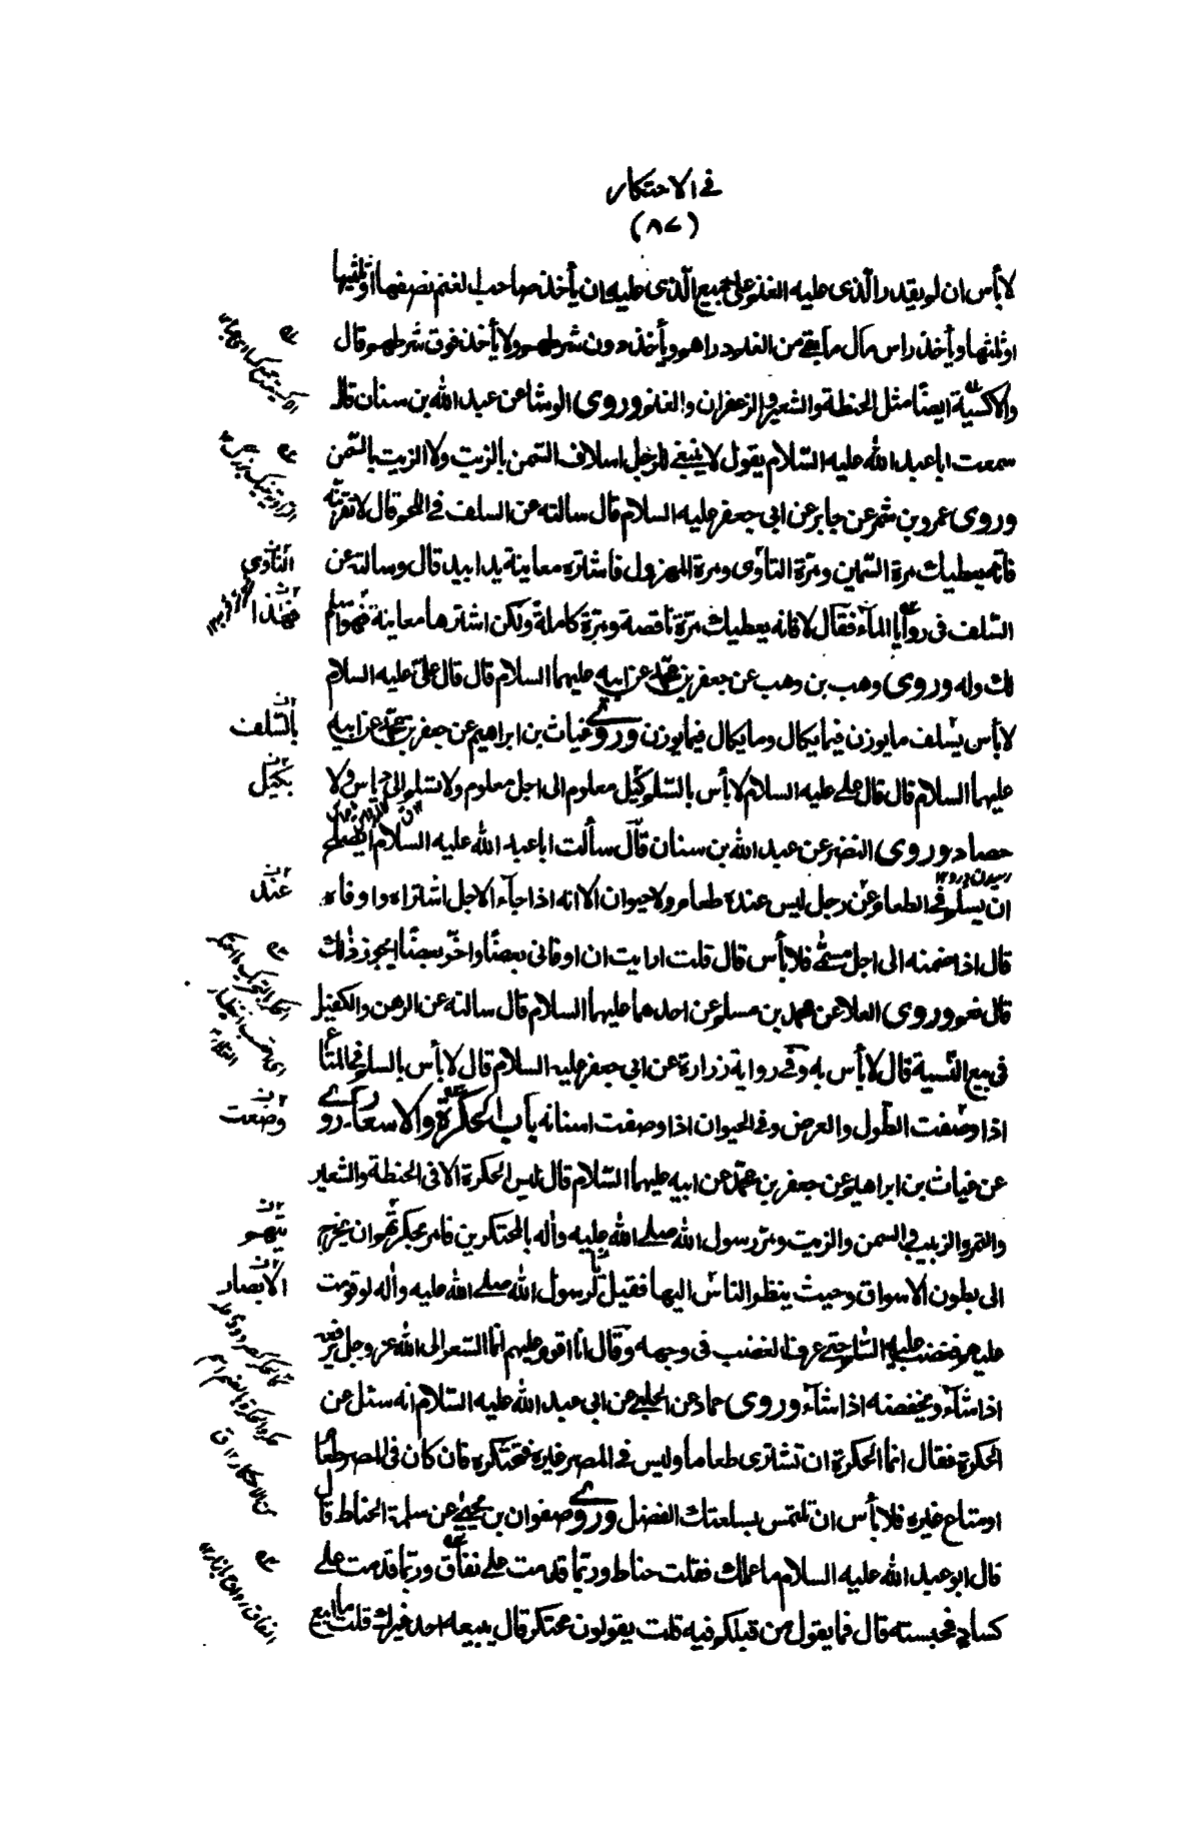 في الاحتكار
(٨٧)
لا بأس ان لم يقدر الّذى عليه الغنم على جميع الّذى عليه ان يأخذ صاحب الغنم نصفها او ثلثيها
او ثلثها و يأخذ راس مال ما بقى من الغنم دراهم ويأخذ دون شرطهم ولا يأخذ فوق شرطهم قال
والاكسية ايضًا مثل الحنطة والشعير والزعفران والغنم وروى الوشا عن عبد الله بن سنان قال
سمعت ابا عبد الله عليه السّلام يقول لا ينبغي للرجل اسلاف السّمن بالزيت ولا الزيت بالسّمن
وروى عمرو بن شمر عن جابر عن ابى جعفر عليه السلام قال سالته عن السلف في اللحم قال لا تقربنّه
فانه يعطيك مرة السّمين ومرّة التاوى ومرة المهزول فاشتره معاينة يدا بيد قال وسالته عن
السّلف في روايا الماء فقال لا فانه يعطيك مرّة ناقصة ومرّة كاملة ولكن اشترها معاينة فهو اسلم
لك وله وروى وهب بن وهب عن جعفر بن محمّد عن ابيه عليهما السلام قال قال علىّ عليه السلام
لا بأس يسلف ما يوزن فيما يكال وما يكال فيما يوزن وروى غياث بن ابراهيم عن جعفر بن محمّد عن ابيه
عليهما السلام قال قال على عليه السلام لا بأس بالسّلم كيل معلوم الى اجل معلوم ولا تسلم الى دياس ولا
حصاد وروى النضر عن عبد الله بن سنان قال سألت ابا عبد الله عليه السلام ايصلح
ان يسلم في الطعام عن رجل ليس عنده طعام ولا حيوان الا انه اذا جاء الاجل اشتراه واوفاه
قال اذا ضمنه الى اجل مسمّى فلا بأس قال قلت ارايت ان اوفانى بعضًا واخّر بعضًا ايجوز ذلك
قال نعم وروى العلا عن محمد بن مسلم عن احدهما عليهما السلام قال سالته عن الرهن والكفيل
في بيع النّسية قال لا بأس به وفى رواية زرارة عن ابى جعفر عليه السلام قال لا بأس بالسلم في المتاع
اذا وصفت الطّول والعرض وفى الحيوان اذا وصفت اسنانه باب الحكرة والاسعار روى
عن غياث بن ابراهيم عن جعفر بن محمّد عن ابيه عليهما السّلام قال ليس الحكرة الا في الحنطة والشعير
والتمر والزبيب والسمن والزيت ومرّ رسول الله صلى الله عليه وآله بالمحتكرين فامر بحكرتهم ان يخرج
الى بطون الاسواق وحيث ينظر الناس اليها فقيل لرسول الله صلى الله عليه وآله لو قومت
عليهم فغضب عليه السّلام حتى عرف الغضب في وجهه وقال انا اقوم عليهم انما السّعر الى الله عز وجل يرفعه
اذا شاء ويخفضه اذا شاء وروى حماد عن الحلبى عن ابى عبد الله عليه السّلام انه سئل عن
الحكرة فقال انما الحكرة ان تشترى طعاما وليس في المصر غيره فتحتكره فان كان في المصر طعام
او متاع غيره فلا بأس ان تلتمس بسلعتك الفضل وروى صفوان بن يحيى عن سلمة الحناط قال
قال ابو عبد الله عليه السلام ما عملك فقلت حناط وربّما قدمت على نفاق وربّما قدمت على
كساد فحبسته قال فما يقول من قبلكم فيه قلت يقولون محتكر قال يبيعه احد غيرك قلت ما ابيع
التاوى
فهذا
بالسّلف
بكيل
عند
وضعت
بتهم
الابصار